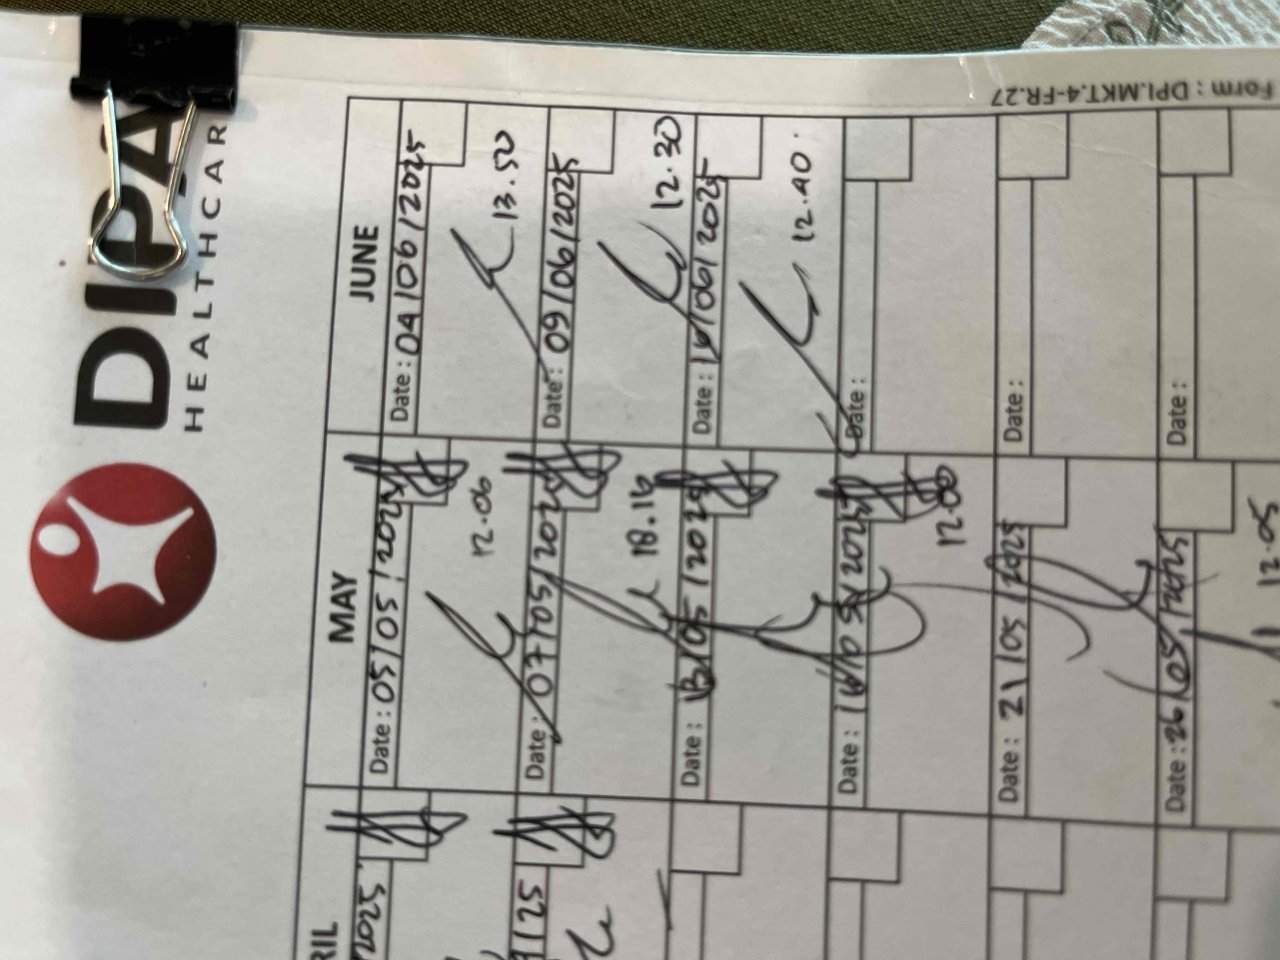 DIPA
HEALTHCAR
Form : DPI.MKT.4-FR.27
RIL
MAY
JUNE
2025
Date : 05/05/2025
12.06
Date : 04/06/2025
13.50
/25
Date : 07/05/2025
18.16
Date : 09/06/2025
12.30
Date : 13/05/2025
Date : 16/06/2025
12.40
Date : 16/05/2025
12.00
Date :
Date : 21/05/2025
Date :
Date : 26/05/2025
12.05
Date :